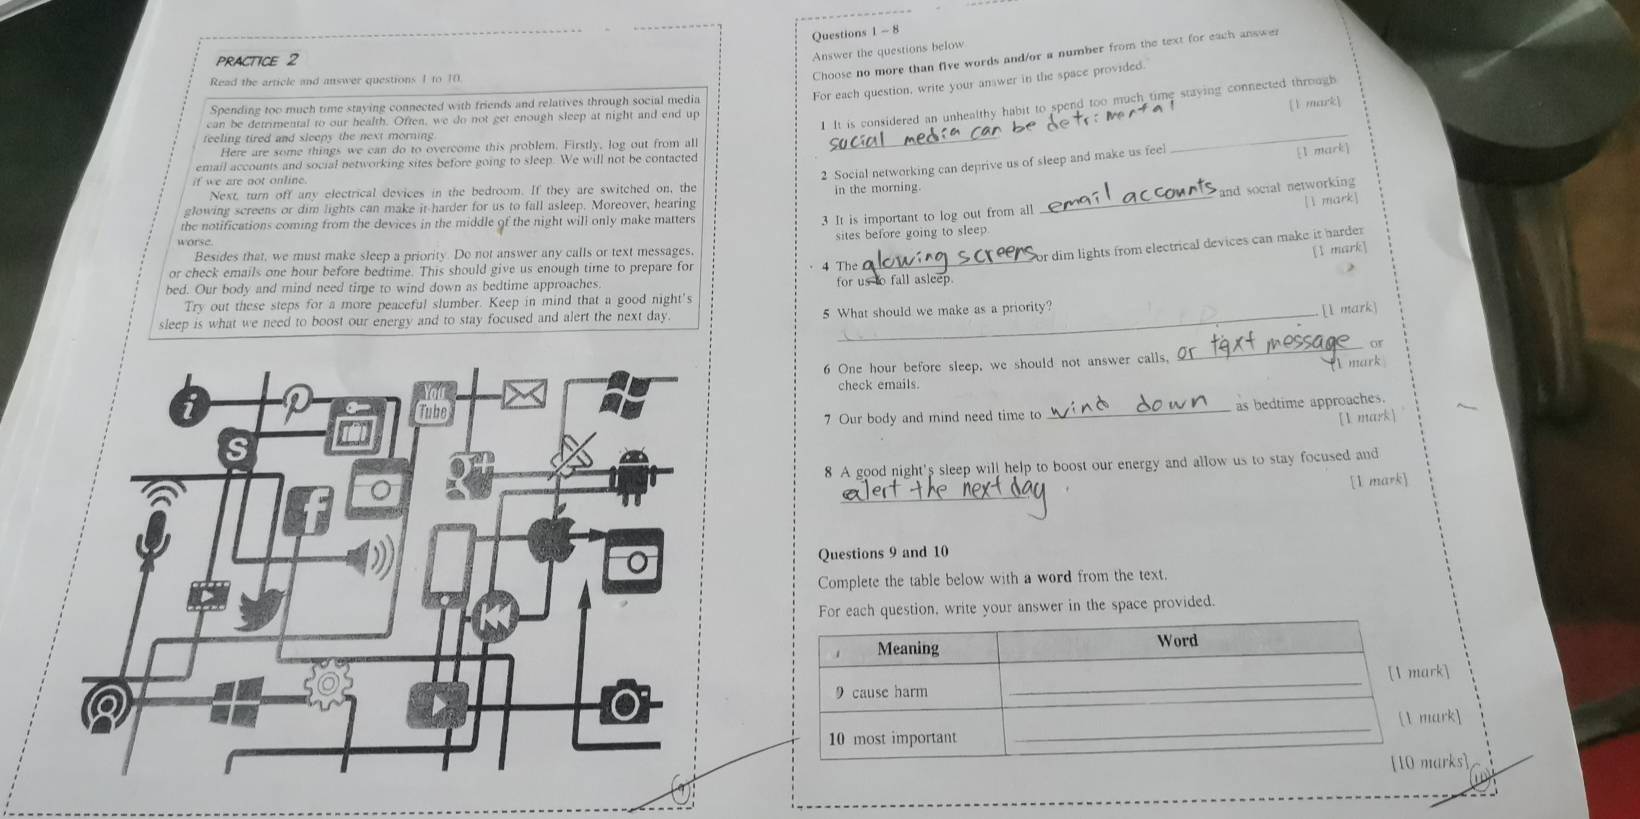 PRACTICE 2
Read the article and answer questions 1 to 10.
Spending too much time staying connected with friends and relatives through social media
can be detrimental to our health. Often, we do not get enough sleep at night and end up
feeling tired and sleepy the next morning.
Here are some things we can do to overcome this problem. Firstly, log out from all
email accounts and social networking sites before going to sleep. We will not be contacted
if we are not online.
Next, turn off any electrical devices in the bedroom. If they are switched on, the
glowing screens or dim lights can make it harder for us to fall asleep. Moreover, hearing
the notifications coming from the devices in the middle of the night will only make matters
worse.
Besides that, we must make sleep a priority. Do not answer any calls or text messages,
or check emails one hour before bedtime. This should give us enough time to prepare for
bed. Our body and mind need time to wind down as bedtime approaches.
Try out these steps for a more peaceful slumber. Keep in mind that a good night's
sleep is what we need to boost our energy and to stay focused and alert the next day.
You
Tube
9
Questions 1 - 8
Answer the questions below
Choose no more than five words and/or a number from the text for each answer
For each question, write your answer in the space provided.
1 It is considered an unhealthy habit to spend too much time staying connected through
social media can be detrimental
[1 mark]
2 Social networking can deprive us of sleep and make us feel
in the morning.
[1 mark]
3 It is important to log out from all email accounts and social networking
sites before going to sleep.
[1 mark]
4 The glowing screens or dim lights from electrical devices can make it harder
for us to fall asleep.
[1 mark]
5 What should we make as a priority?
[1 mark]
6 One hour before sleep, we should not answer calls, or text message or
check emails.
[1 mark]
7 Our body and mind need time to wind down as bedtime approaches.
[1 mark]
8 A good night's sleep will help to boost our energy and allow us to stay focused and
alert the next day.
[1 mark]
Questions 9 and 10
Complete the table below with a word from the text.
For each question, write your answer in the space provided.
Meaning Word
9 cause harm
[1 mark]
10 most important
[1 mark]
[10 marks]
10